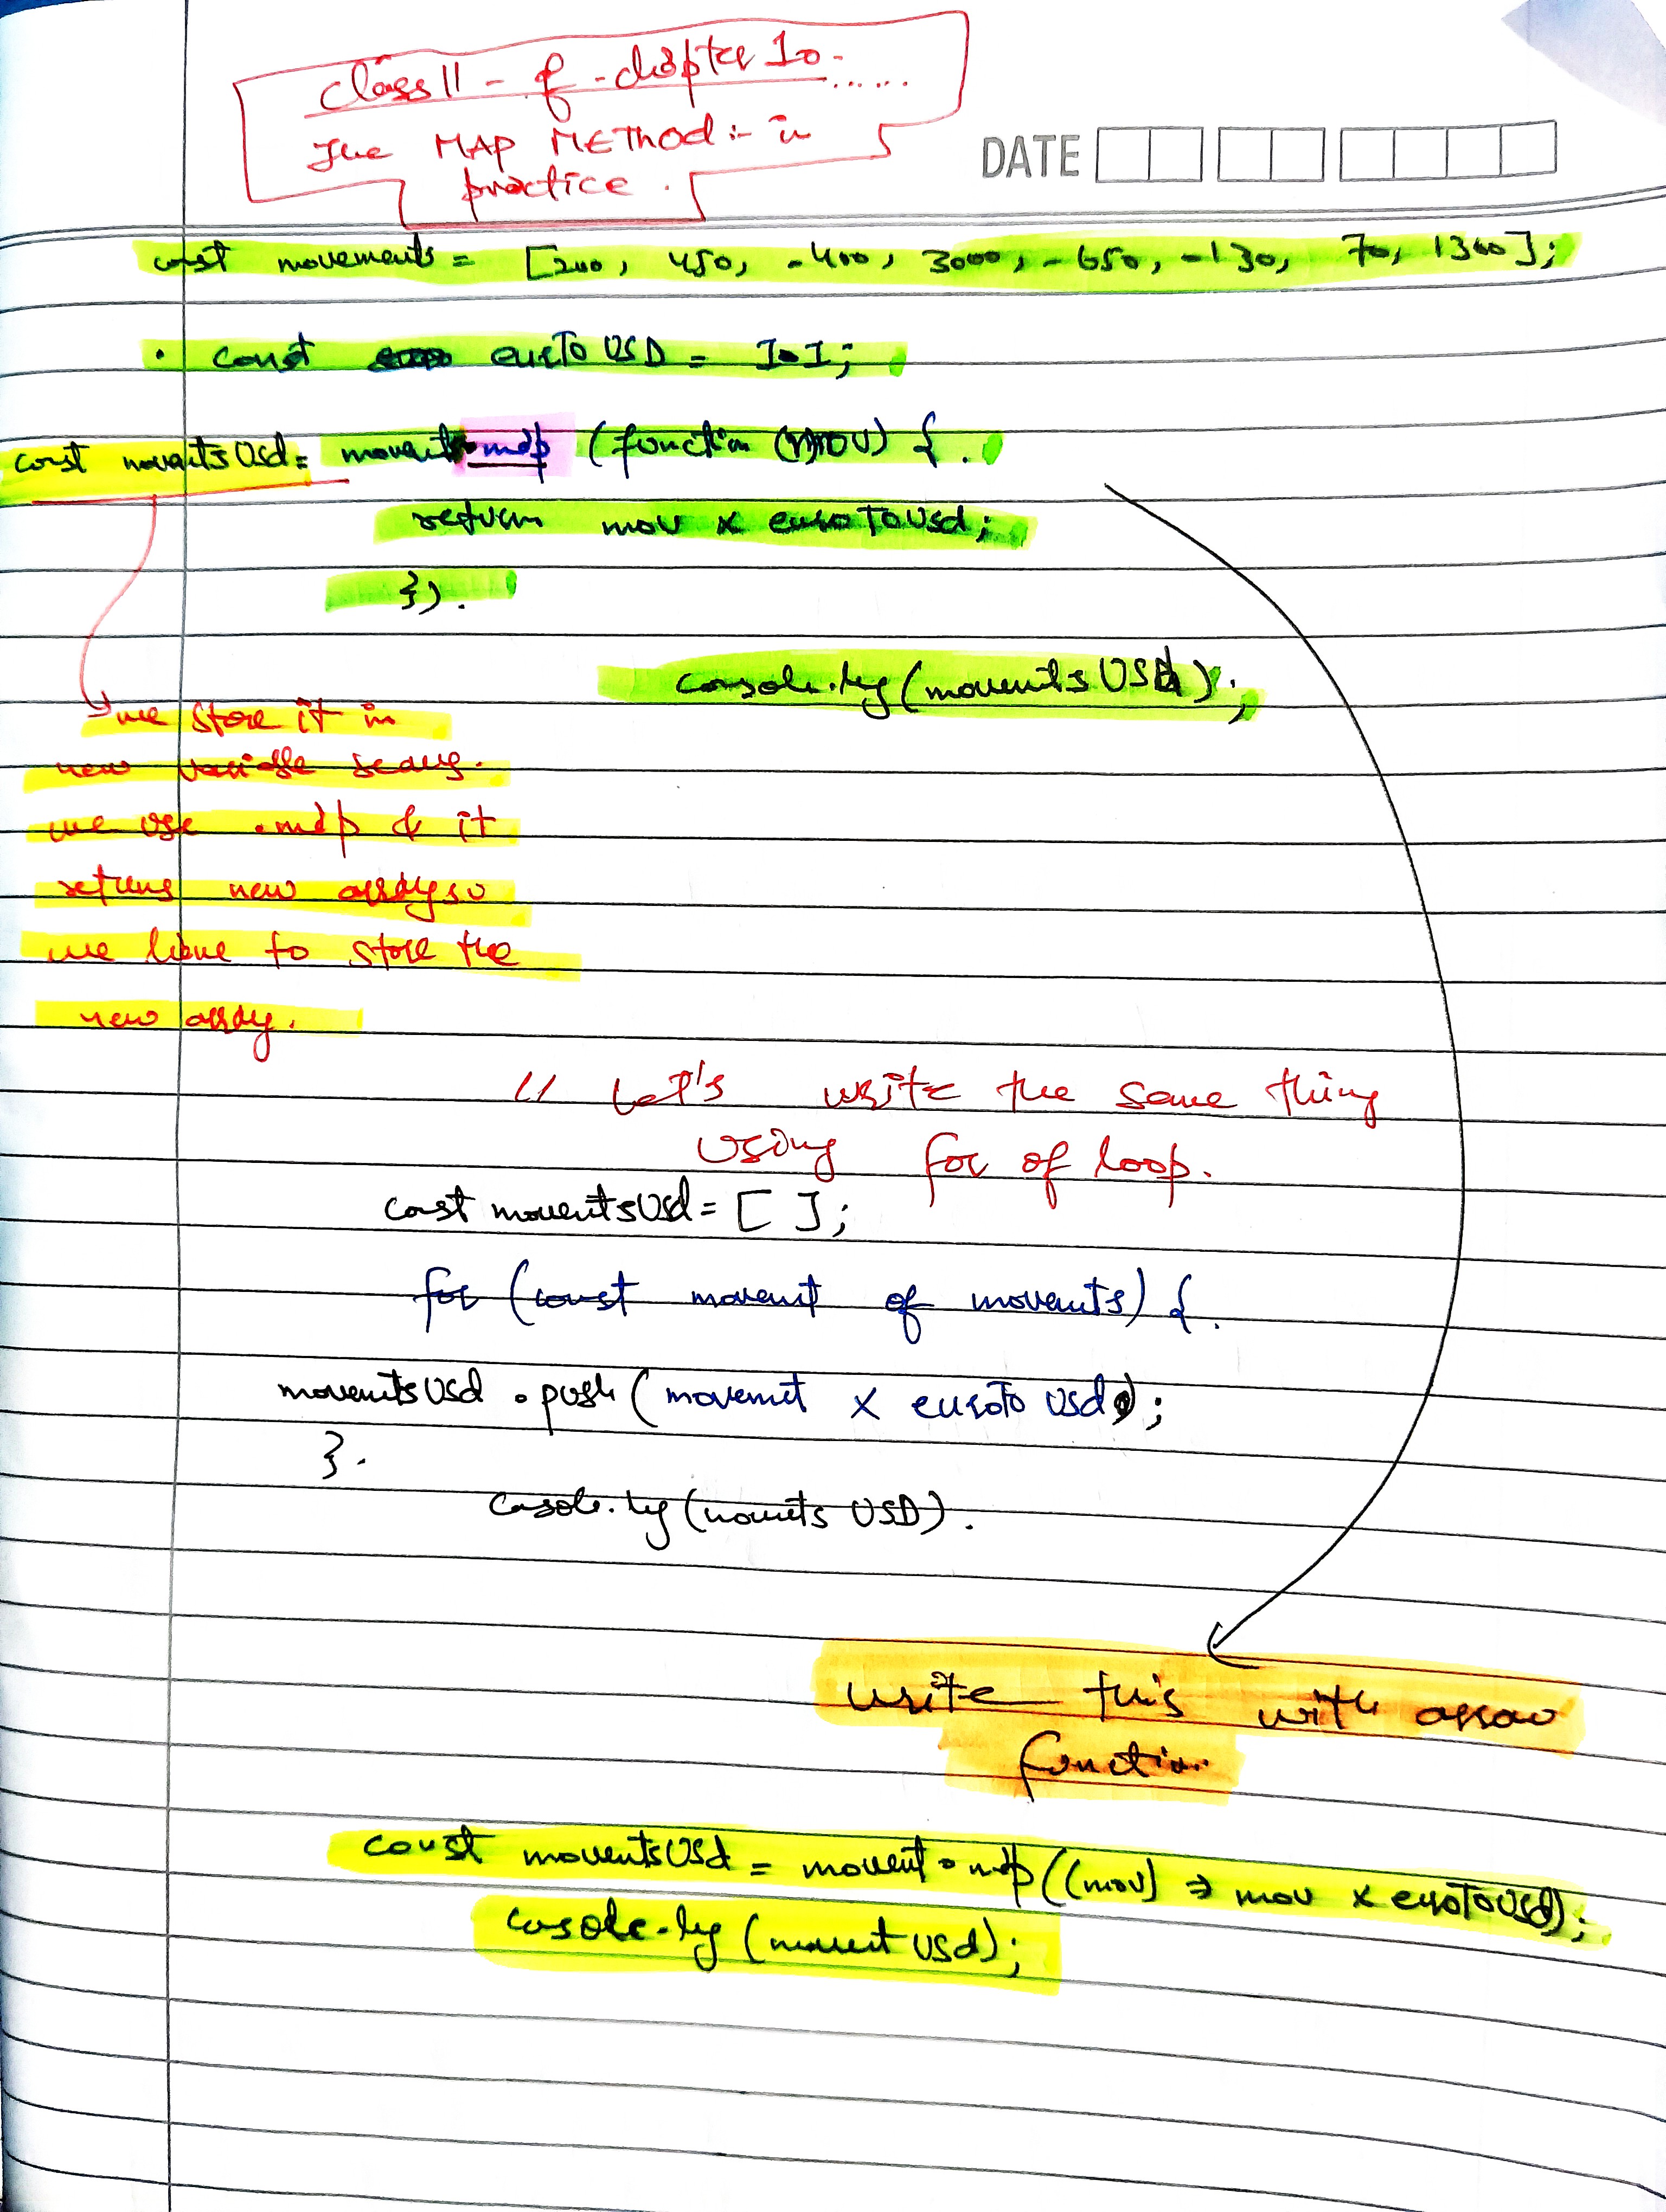 class 11 - of - chapter 10 - ......
The MAP METHOD :- in
practice .
DATE
const movements = [200, 450, -400, 3000, -650, -130, 70, 1300];
. const euroTo USD = 1.1;
const movmentsUsd = movments.map (function (mov) {.
return mov x euroToUsd;
}).
console.log (movments USD);
we store it in
new variable becaus.
we use .map & it
returns new array so
we have to store the
new array.
// Let's write the same thing
using for of loop.
const movmentsUsd = [ ];
for (const movemnt of movemnts) {.
movemntsUsd . push ( movemnt x euroTo Usd);
}.
console.log (movmnts USD).
write this with arrow
function
const movmentsUsd = movment . map ((mov) => mov x euroToUsd);
console.log (movment Usd);